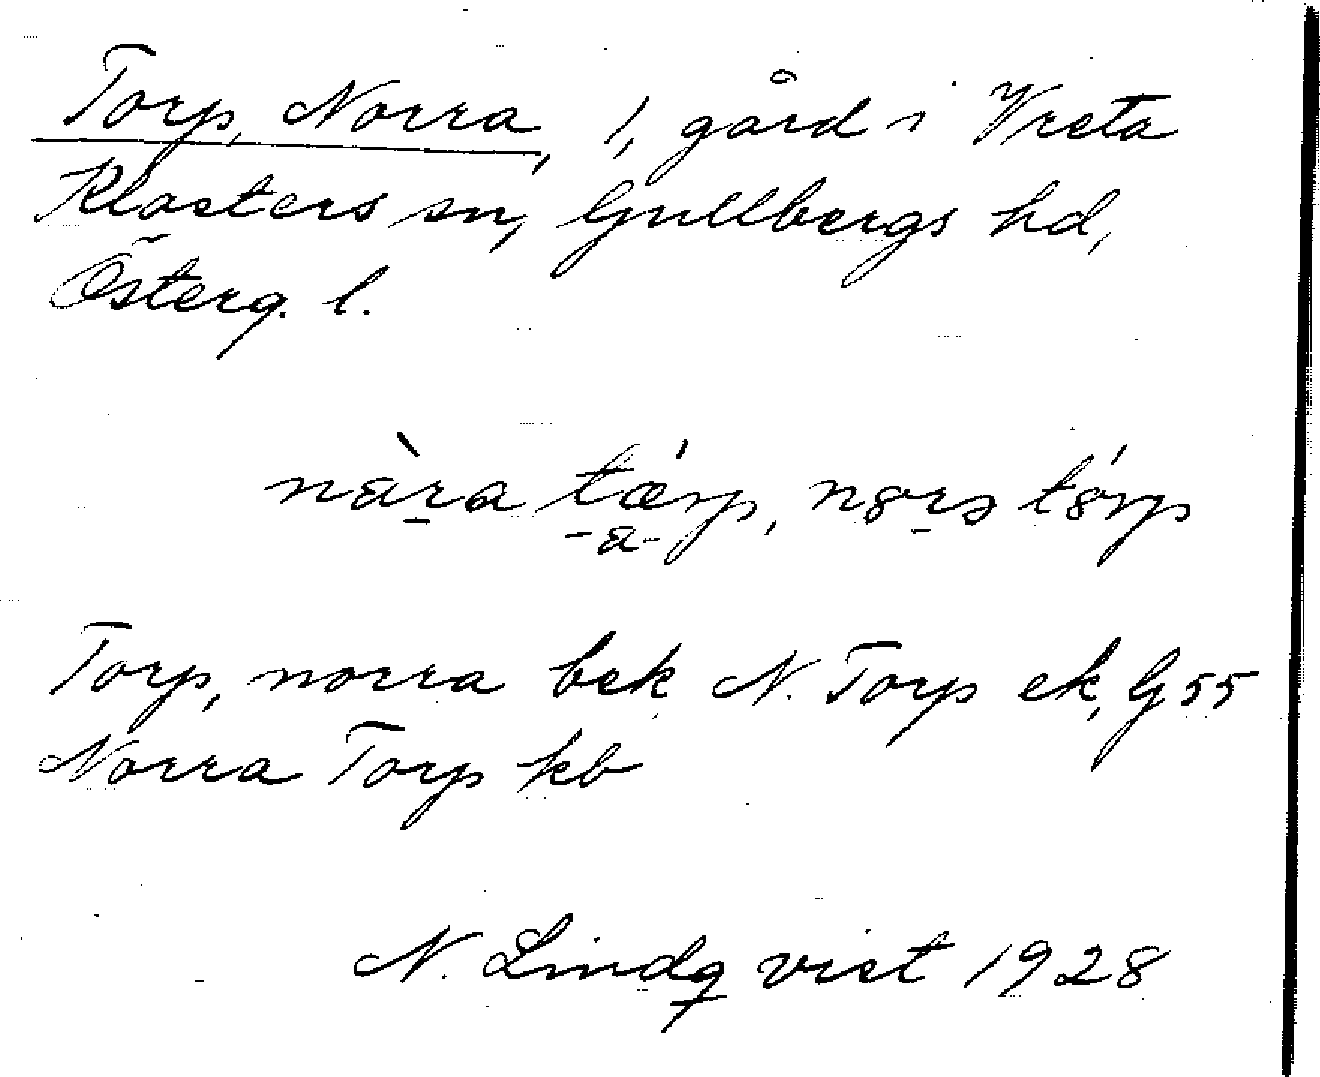 Torp, Norra, 1, gård i Vreta
Klosters sn, Gullbergs hd,
Österg. l.
nàra tǽrp, nors tórp
-a-
Torp, norra bek N. Torp ek, G 55
Norra Torp kb
N. Lindqvist 1928